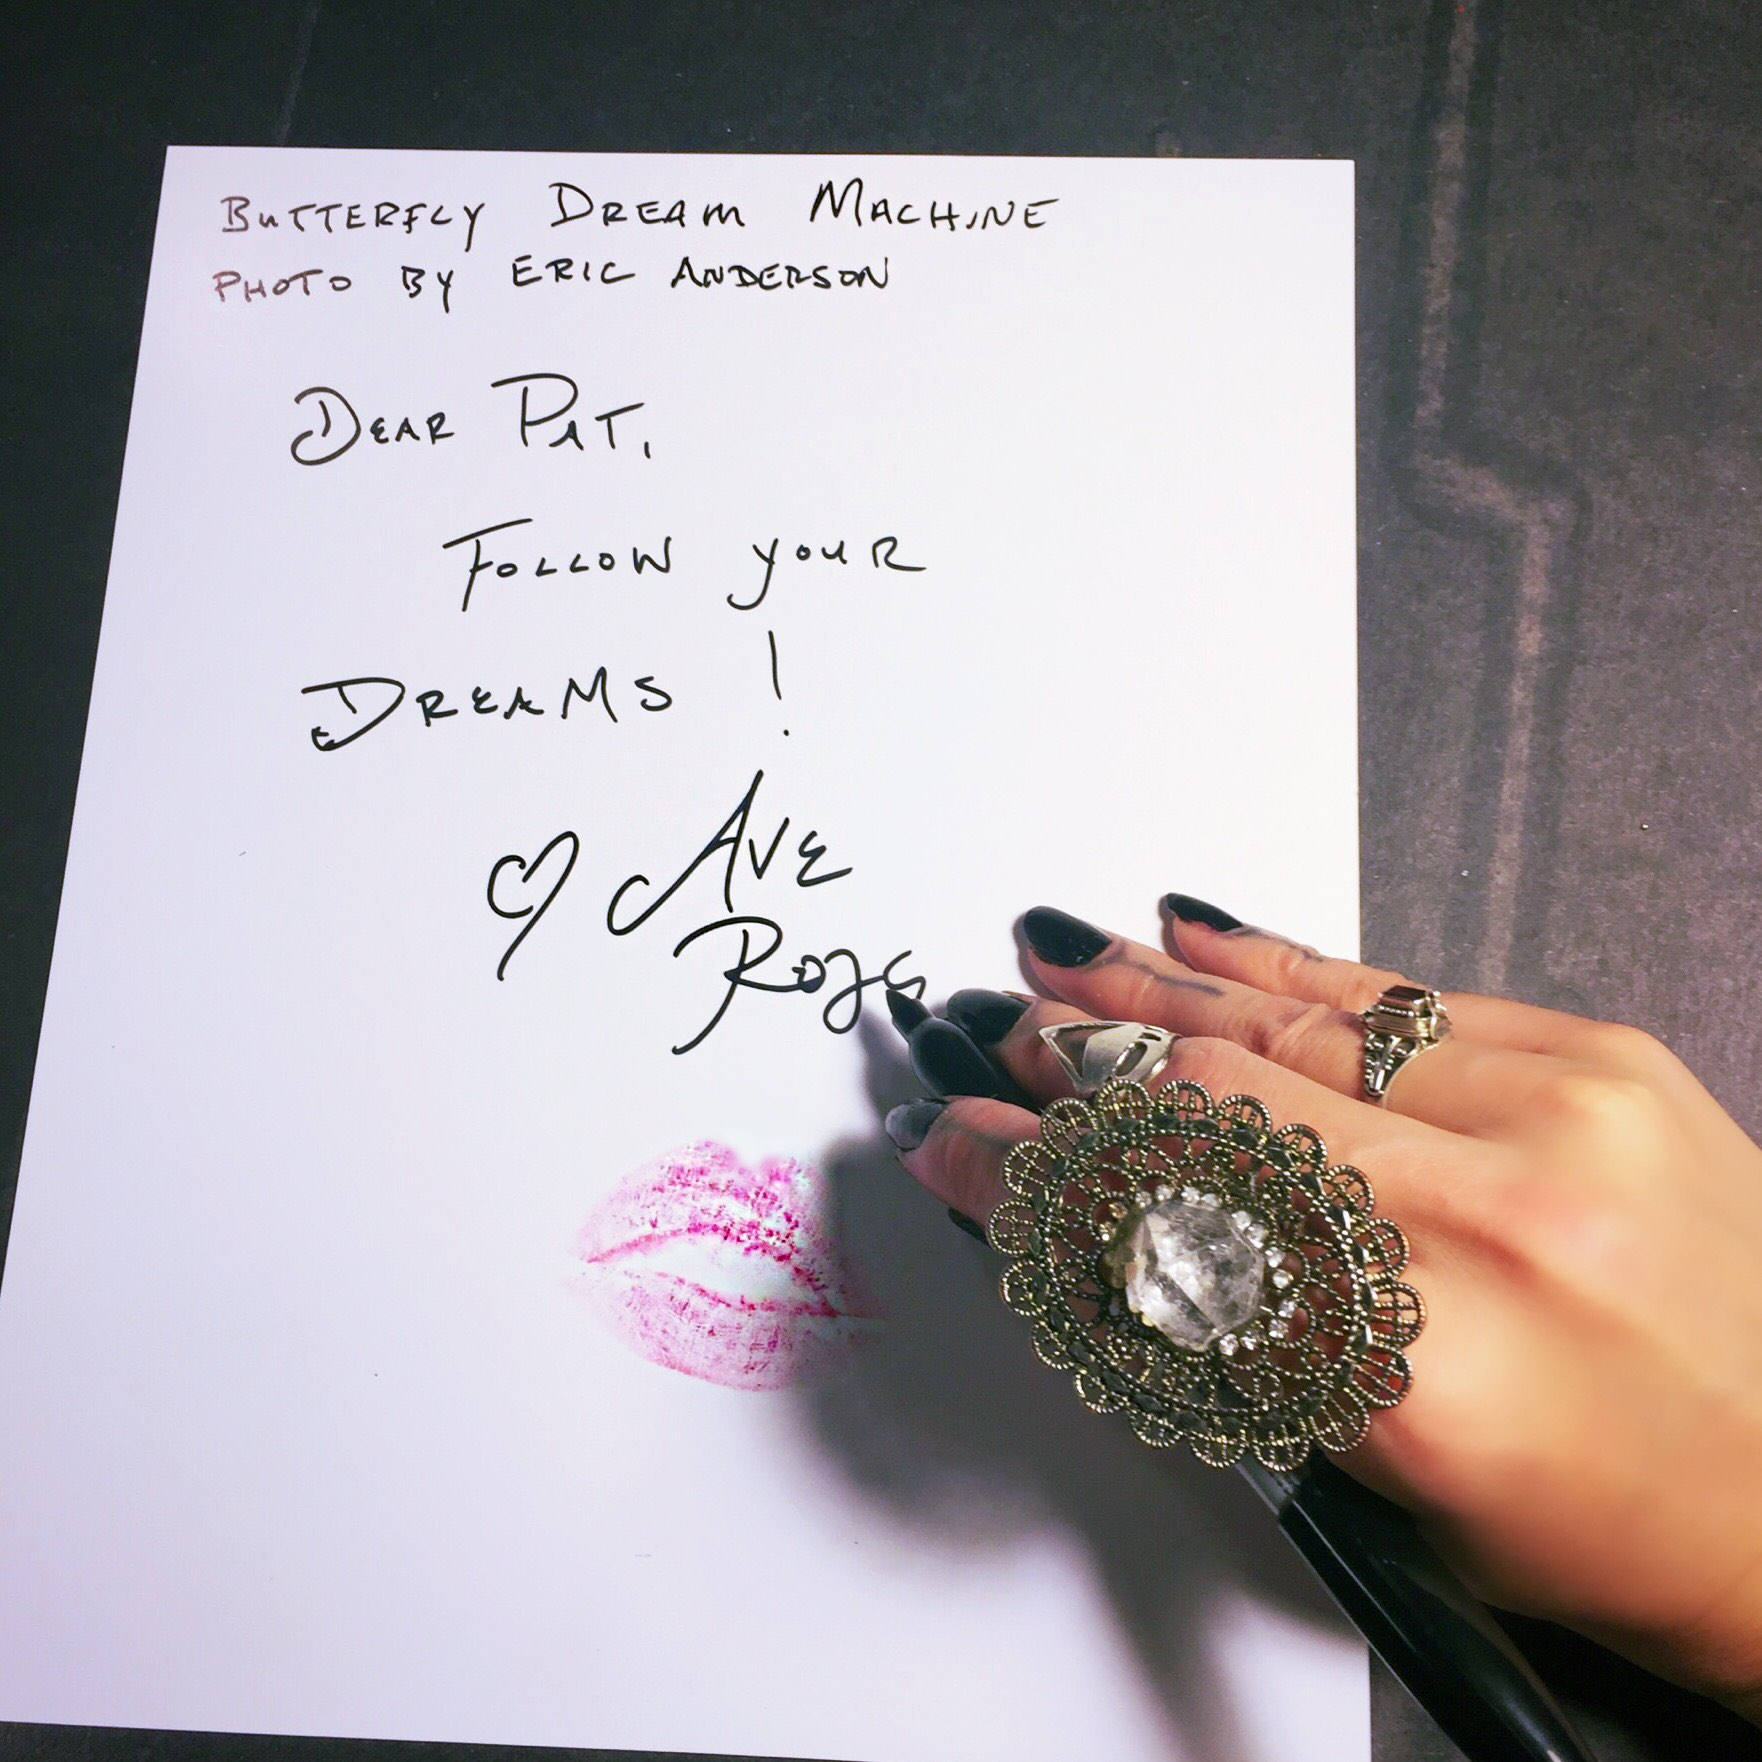 BUTTERFLY DREAM MACHINE
PHOTO BY ERIC ANDERSON
DEAR PAT,
FOLLOW YOUR
DREAMS!
♡ AVE
ROSE